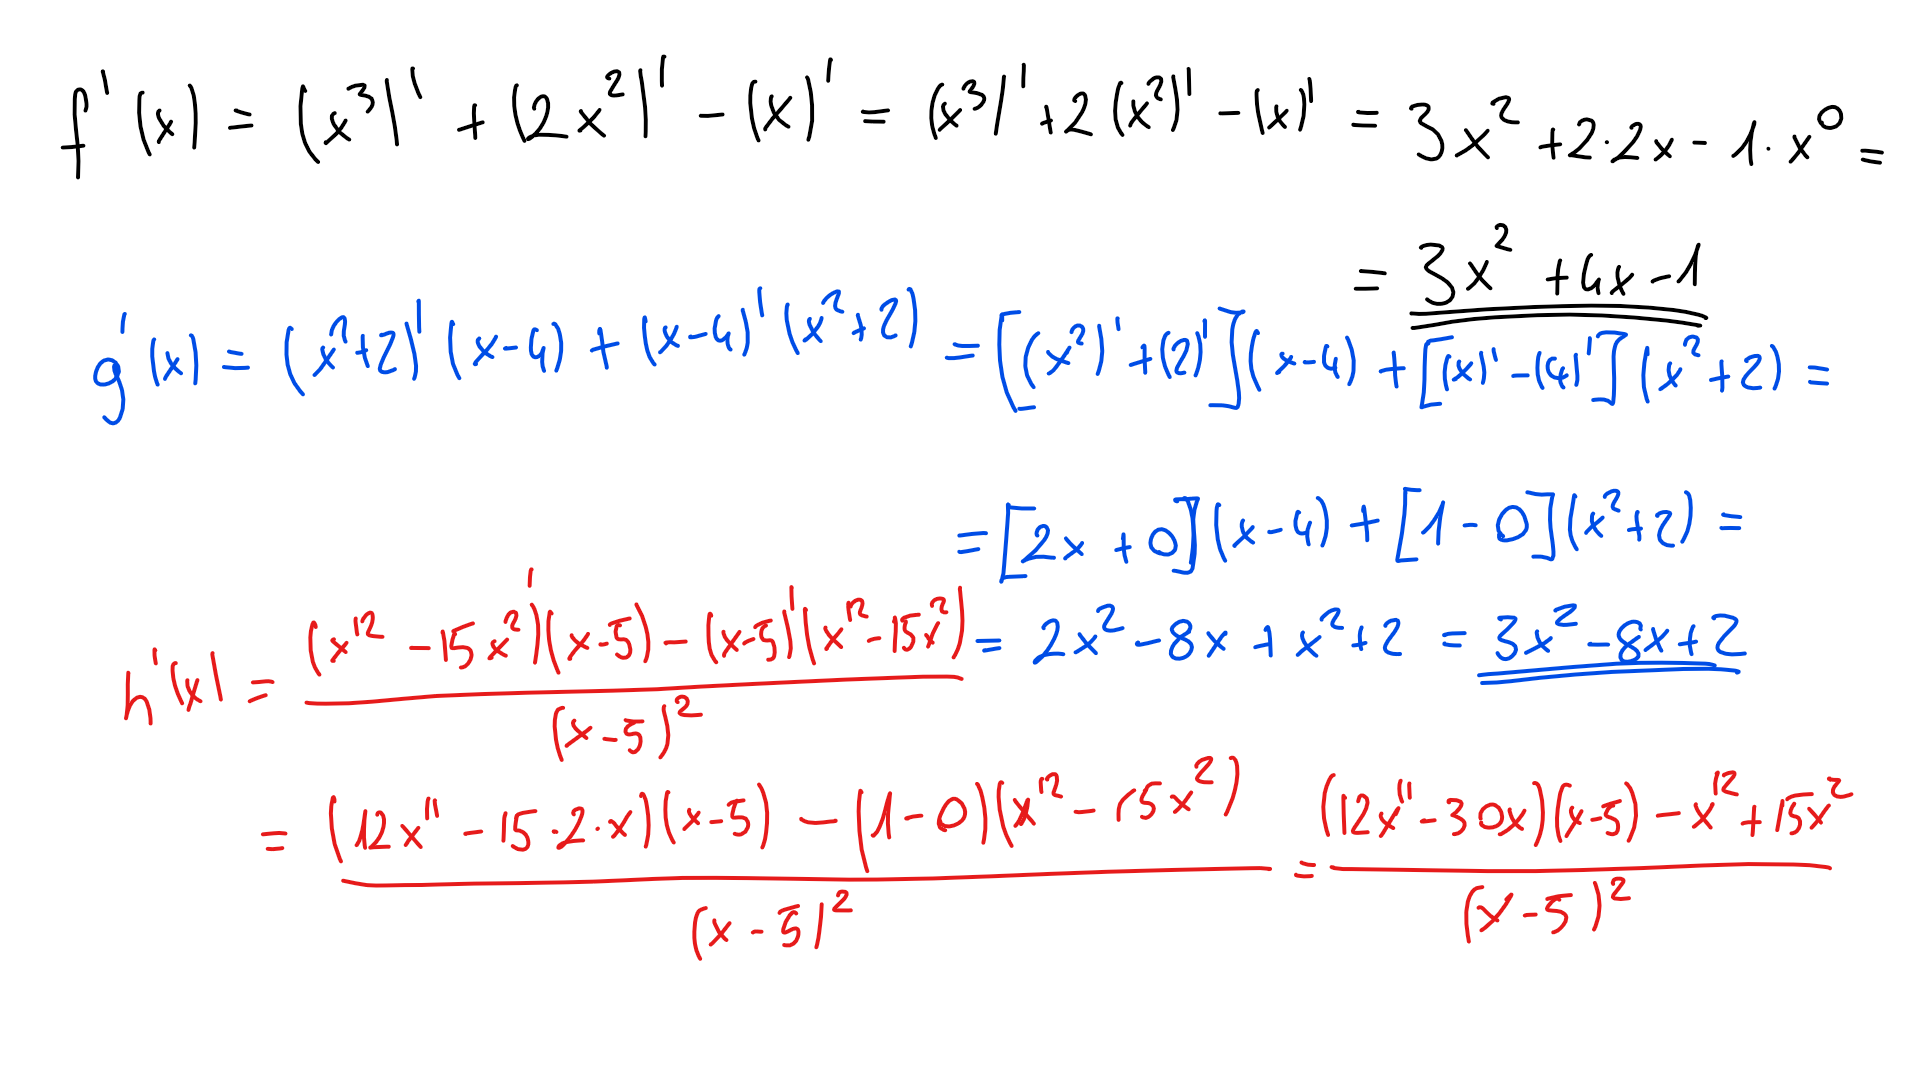 f'(x) = (x³)' + (2x²)' - (x)' = (x³)' + 2(x²)' - (x)' = 3x² + 2·2x - 1·x⁰ =
= 3x² + 4x - 1
g'(x) = (x²+2)'(x-4) + (x-4)'(x²+2) = [(x²)' + (2)'](x-4) + [(x)' - (4)'](x²+2) =
= [2x + 0](x-4) + [1-0](x²+2) =
= 2x² - 8x + x² + 2 = 3x² - 8x + 2
h'(x) = ((x¹² - 15x²)'(x-5) - (x-5)'(x¹² - 15x²)) / (x-5)²
= ((12x¹¹ - 15·2·x)(x-5) - (1-0)(x¹² - 15x²)) / (x-5)² = ((12x¹¹ - 30x)(x-5) - x¹² + 15x²) / (x-5)²